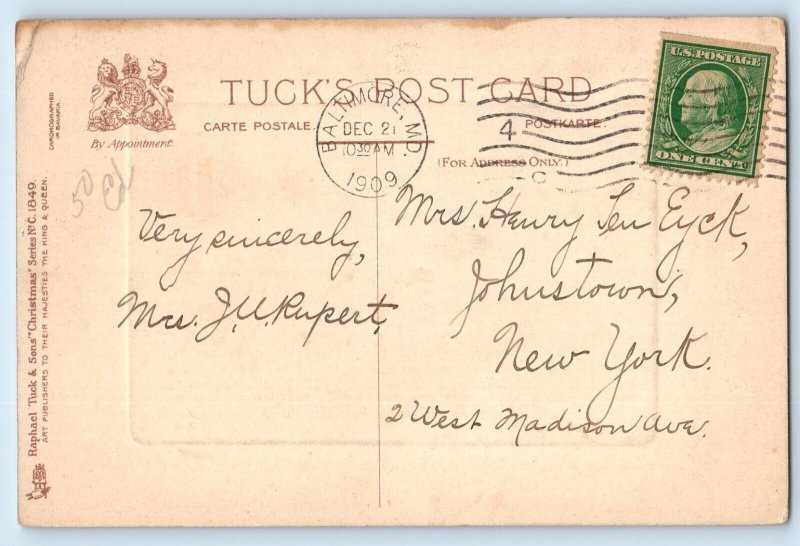 TUCK'S POST CARD
CARTE POSTALE.
POSTKARTE.
(FOR ADDRESS ONLY.)
By Appointment.
CHROMOGRAPHED
IN BAVARIA.
Raphael Tuck & Sons' "Christmas" Series No. C. 1849.
ART PUBLISHERS TO THEIR MAJESTIES THE KING & QUEEN.
BALTIMORE, MD.
DEC 21
1030 AM
1909
4
C
U.S. POSTAGE
ONE CENT
50
Very sincerely,
Mrs. J. U. Rupert,
Mrs. Henry Ten Eyck,
Johnstown,
New York.
2 West Madison Ave.